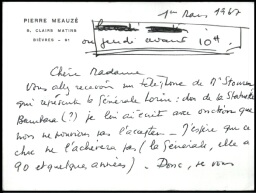 PIERRE MEAUZÉ
6, CLAIRE MATINS
BIÈVRES - 91
1er Mars 1967
ou jeudi avant 10H.
Chère Madame
Vous allez recevoir un téléphone de
qui représente la Générale : don de la Statuette
Bambara (?) je lui ai écrit avec onction que
nous ne pouvions pas l'accepter - J'espère que ce
cher ne l'achèvera pas (la Générale, elle a
90 et quelques années). - Donc, je vous